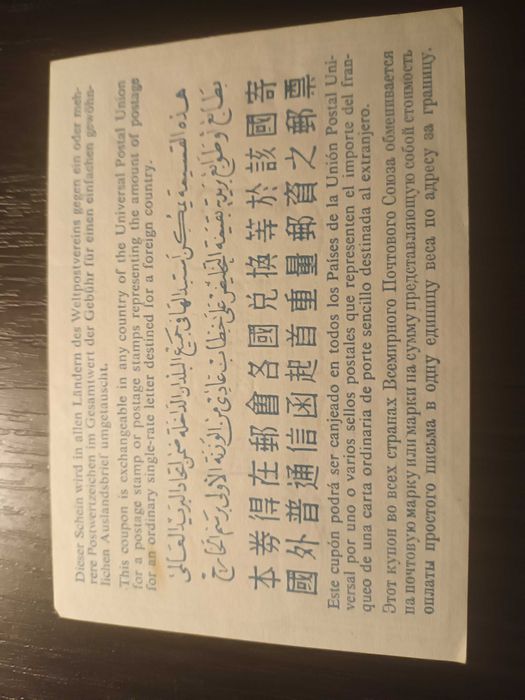 Dieser Schein wird in allen Ländern des Weltpostvereins gegen ein oder meh-
rere Postwertzeichen im Gesamtwert der Gebühr für einen einfachen gewöhn-
lichen Auslandsbrief umgetauscht.
This coupon is exchangeable in any country of the Universal Postal Union
for a postage stamp or postage stamps representing the amount of postage
for an ordinary single-rate letter destined for a foreign country.
هذه القسيمة يمكن استبدالها فى جميع البلدان الداخلة ضمن اتحاد البريد العالمى
بطابع أو طوابع بريد بقيمة التخليص على خطاب عادى من الوزنة الأولى برسم الخارج
本券得在郵會各國兌換等於該國寄
國外普通信函起首重量郵資之郵票
Este cupón podrá ser canjeado en todos los Países de la Unión Postal Uni-
versal por uno o varios sellos postales que representen el importe del fran-
queo de una carta ordinaria de porte sencillo destinada al extranjero.
Этот купон во всех странах Всемирного Почтового Союза обменивается
на почтовую марку или марки на сумму представляющую собой стоимость
оплаты простого письма в одну единицу веса по адресу за границу.